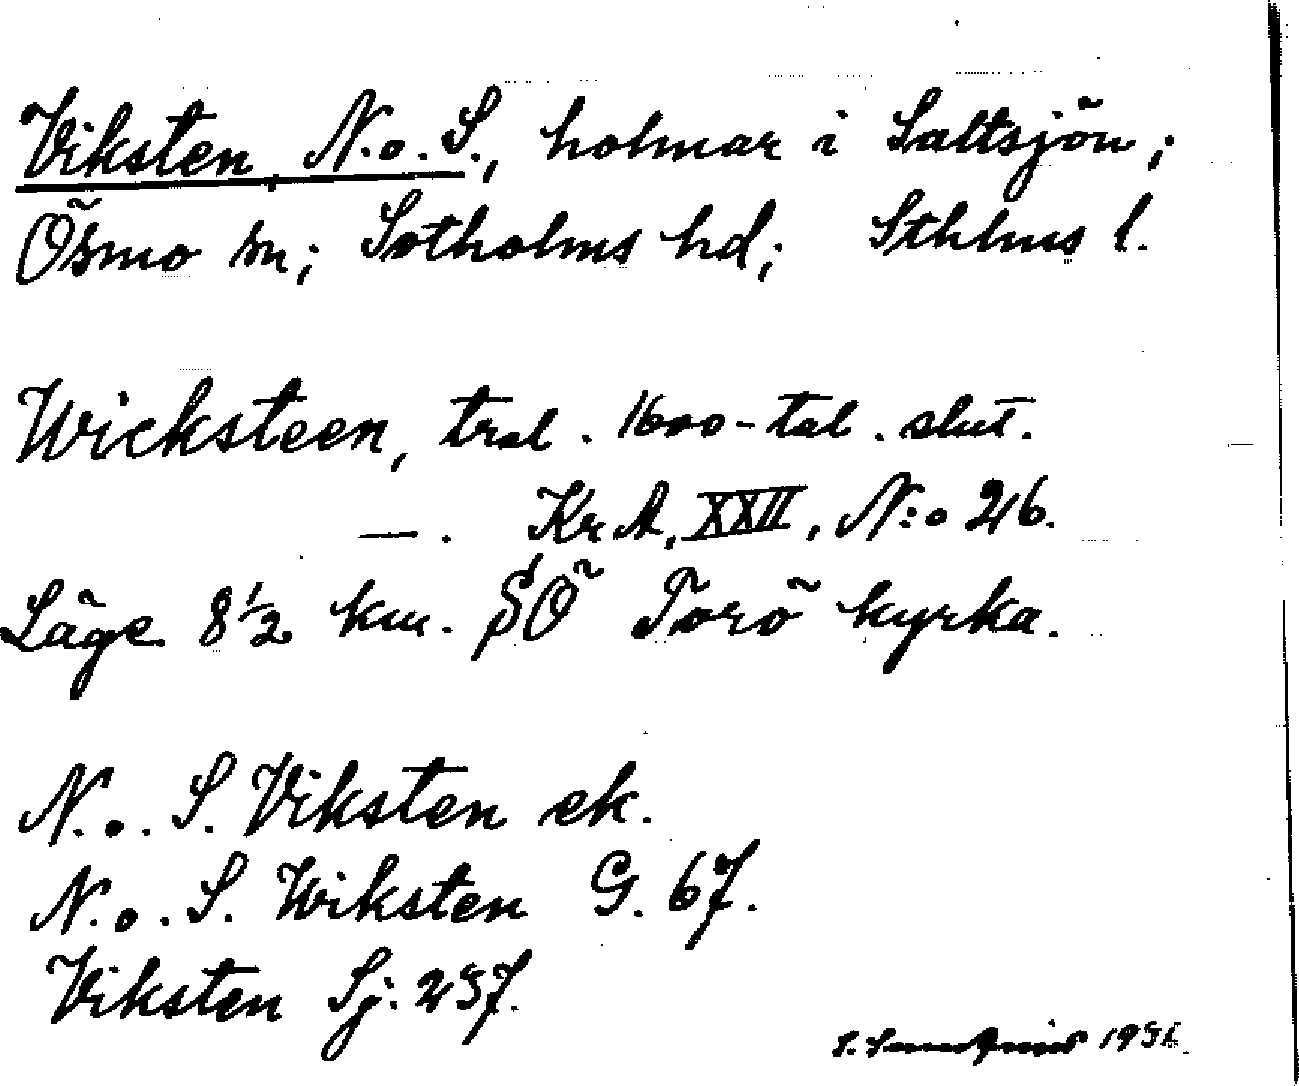 Viksten, N. o. S., holmar i Saltsjön;
Ösmo sn; Sotholms hd; Sthlms l.
Wicksteen, tral. 1600-tal. slut.
—. Kr A, XXII, N:o 26.
Läge 8 1/2 km. SÖ Torö kyrka.
N. o. S. Viksten ek.
N. o. S. Wiksten G. 67.
Viksten Sj. 257.
S.